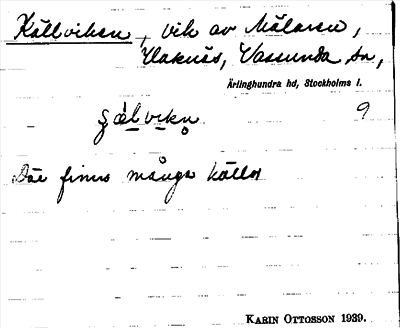 Källviken, vik av Mälaren,
Haknäs, Vassunda sn,
Ärlinghundra hd, Stockholms l.
9
Där finns många källor
KARIN OTTOSSON 1939.